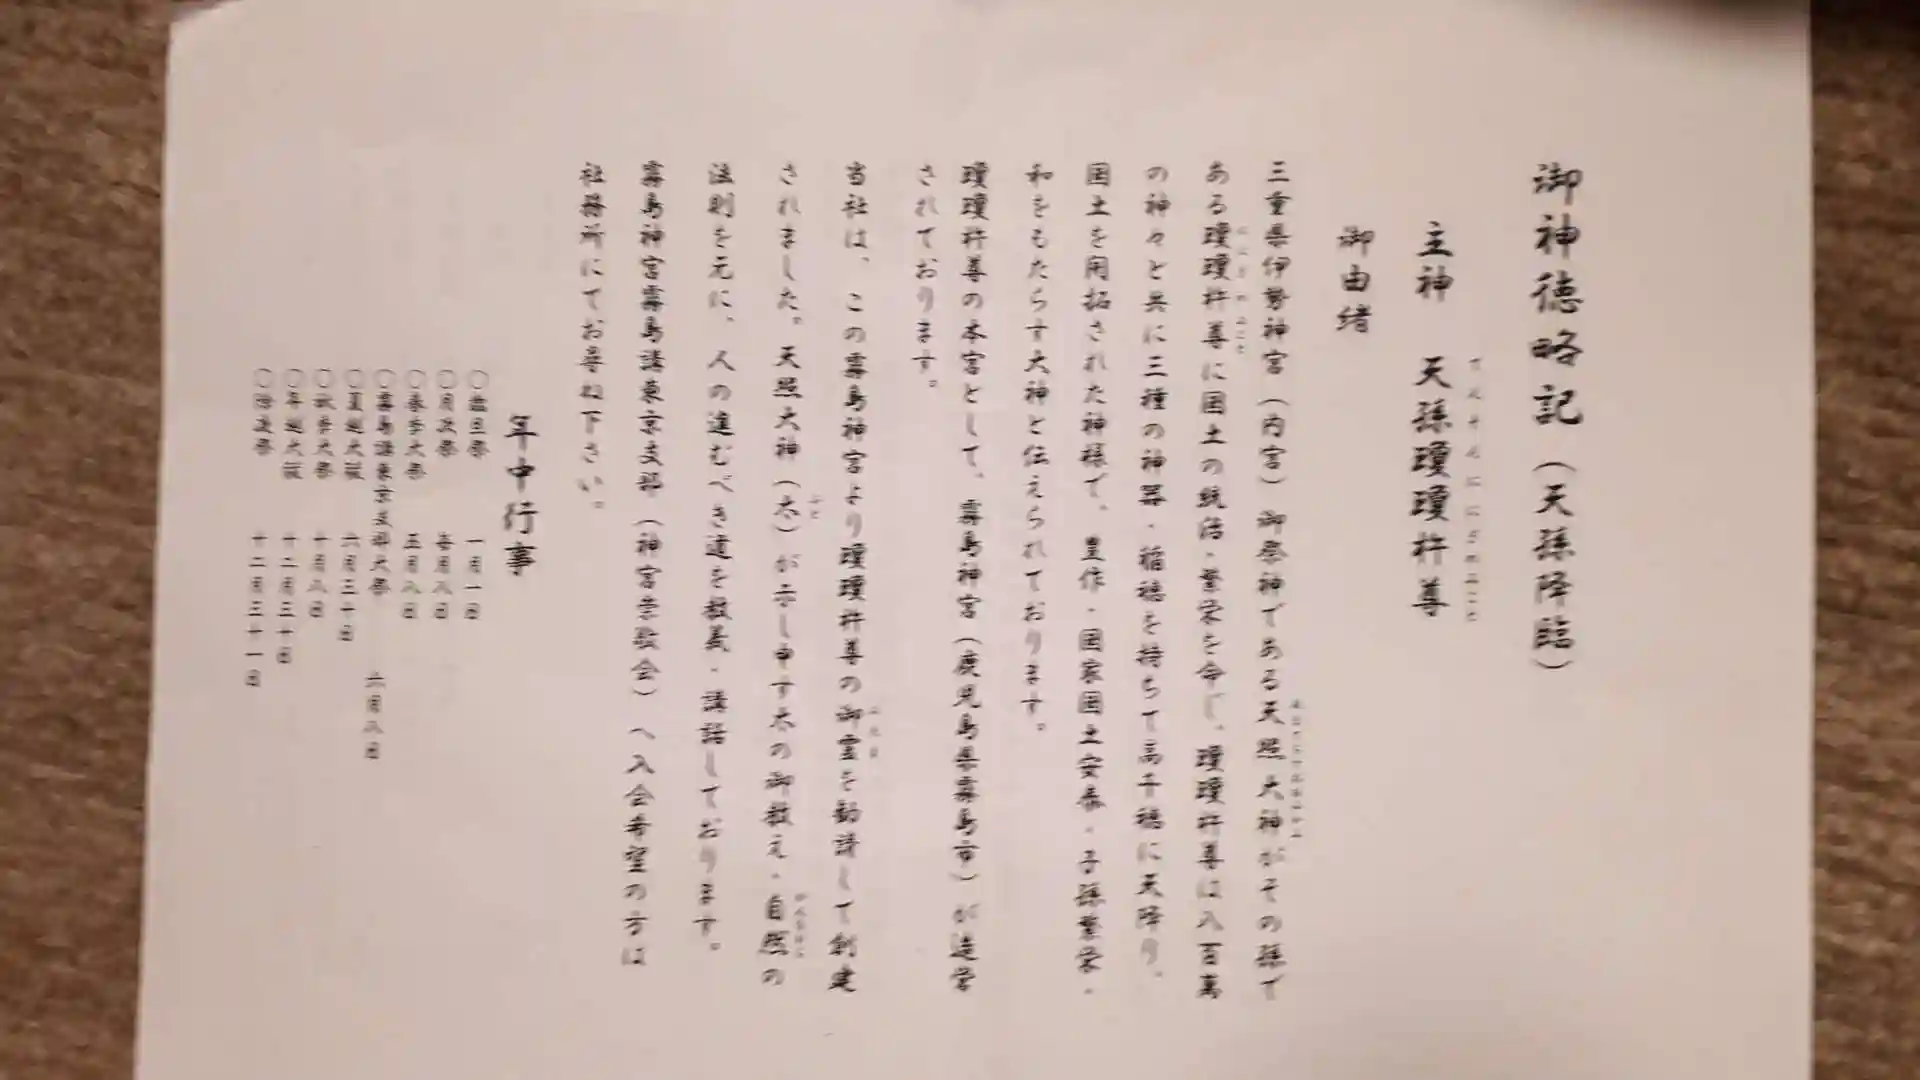 御神徳略記（天孫降臨）
主神　天孫瓊瓊杵尊
てんそんににぎのみこと
御由緒
三重県伊勢神宮（内宮）御祭神である天照大神がその孫で
ある瓊瓊杵尊に国土の統治・繁栄を命じ、瓊瓊杵尊は八百萬
ににぎのみこと
の神々と共に三種の神器・稲穂を持ちて高千穂に天降り、
国土を開拓された神様で、豊作・国家国土安泰・子孫繁栄・
和をもたらす大神と伝えられております。
瓊瓊杵尊の本宮として、霧島神宮（鹿児島県霧島市）が造営
されております。
当社は、この霧島神宮より瓊瓊杵尊の御霊を勧請して創建
みたま
されました。天照大神（太）が示し申す太の御教え・自然の
法則を元に、人の進むべき道を教義・講話しております。
霧島神宮霧島講東京支部（神宮崇敬会）へ入会希望の方は
社務所にてお尋ね下さい。
年中行事
〇歳旦祭　一月一日
〇月次祭　毎月八日
〇春季大祭　五月八日
〇霧島講東京支部大祭　六月八日
〇夏越大祓　六月三十日
〇秋季大祭　十月八日
〇年越大祓　十二月三十日
〇除夜祭　十二月三十一日